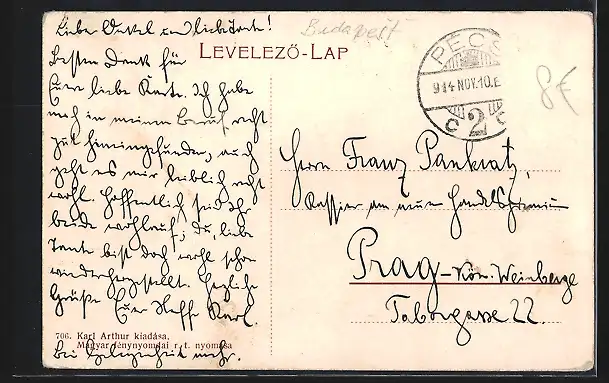 Liebe Onkel und liebe Tante!
Besten Dank für
Euer liebe Karte. Ich habe
mich in meinen Beruf recht
gut hineingefunden, auch
geht es mir leiblich recht
wohl. Hoffentlich seid Ihr
beide wohlauf; du, liebe
Tante bist doch wohl schon
wiederhergestellt. Herzliche
Grüße Euer Neffe Karl.
Bei Gelegenheit mehr.
706. Karl Arthur kiadása.
Magyar fénynyomdai r. t. nyomása
Budapest
LEVELEZŐ-LAP
PÉCS
914 NOV. 10. E
C 2 C
8€
Herrn Franz Pankratz,
Kassier am neuen Handelsgremium
Prag-Kön. Weinberge
Taborgasse 22.